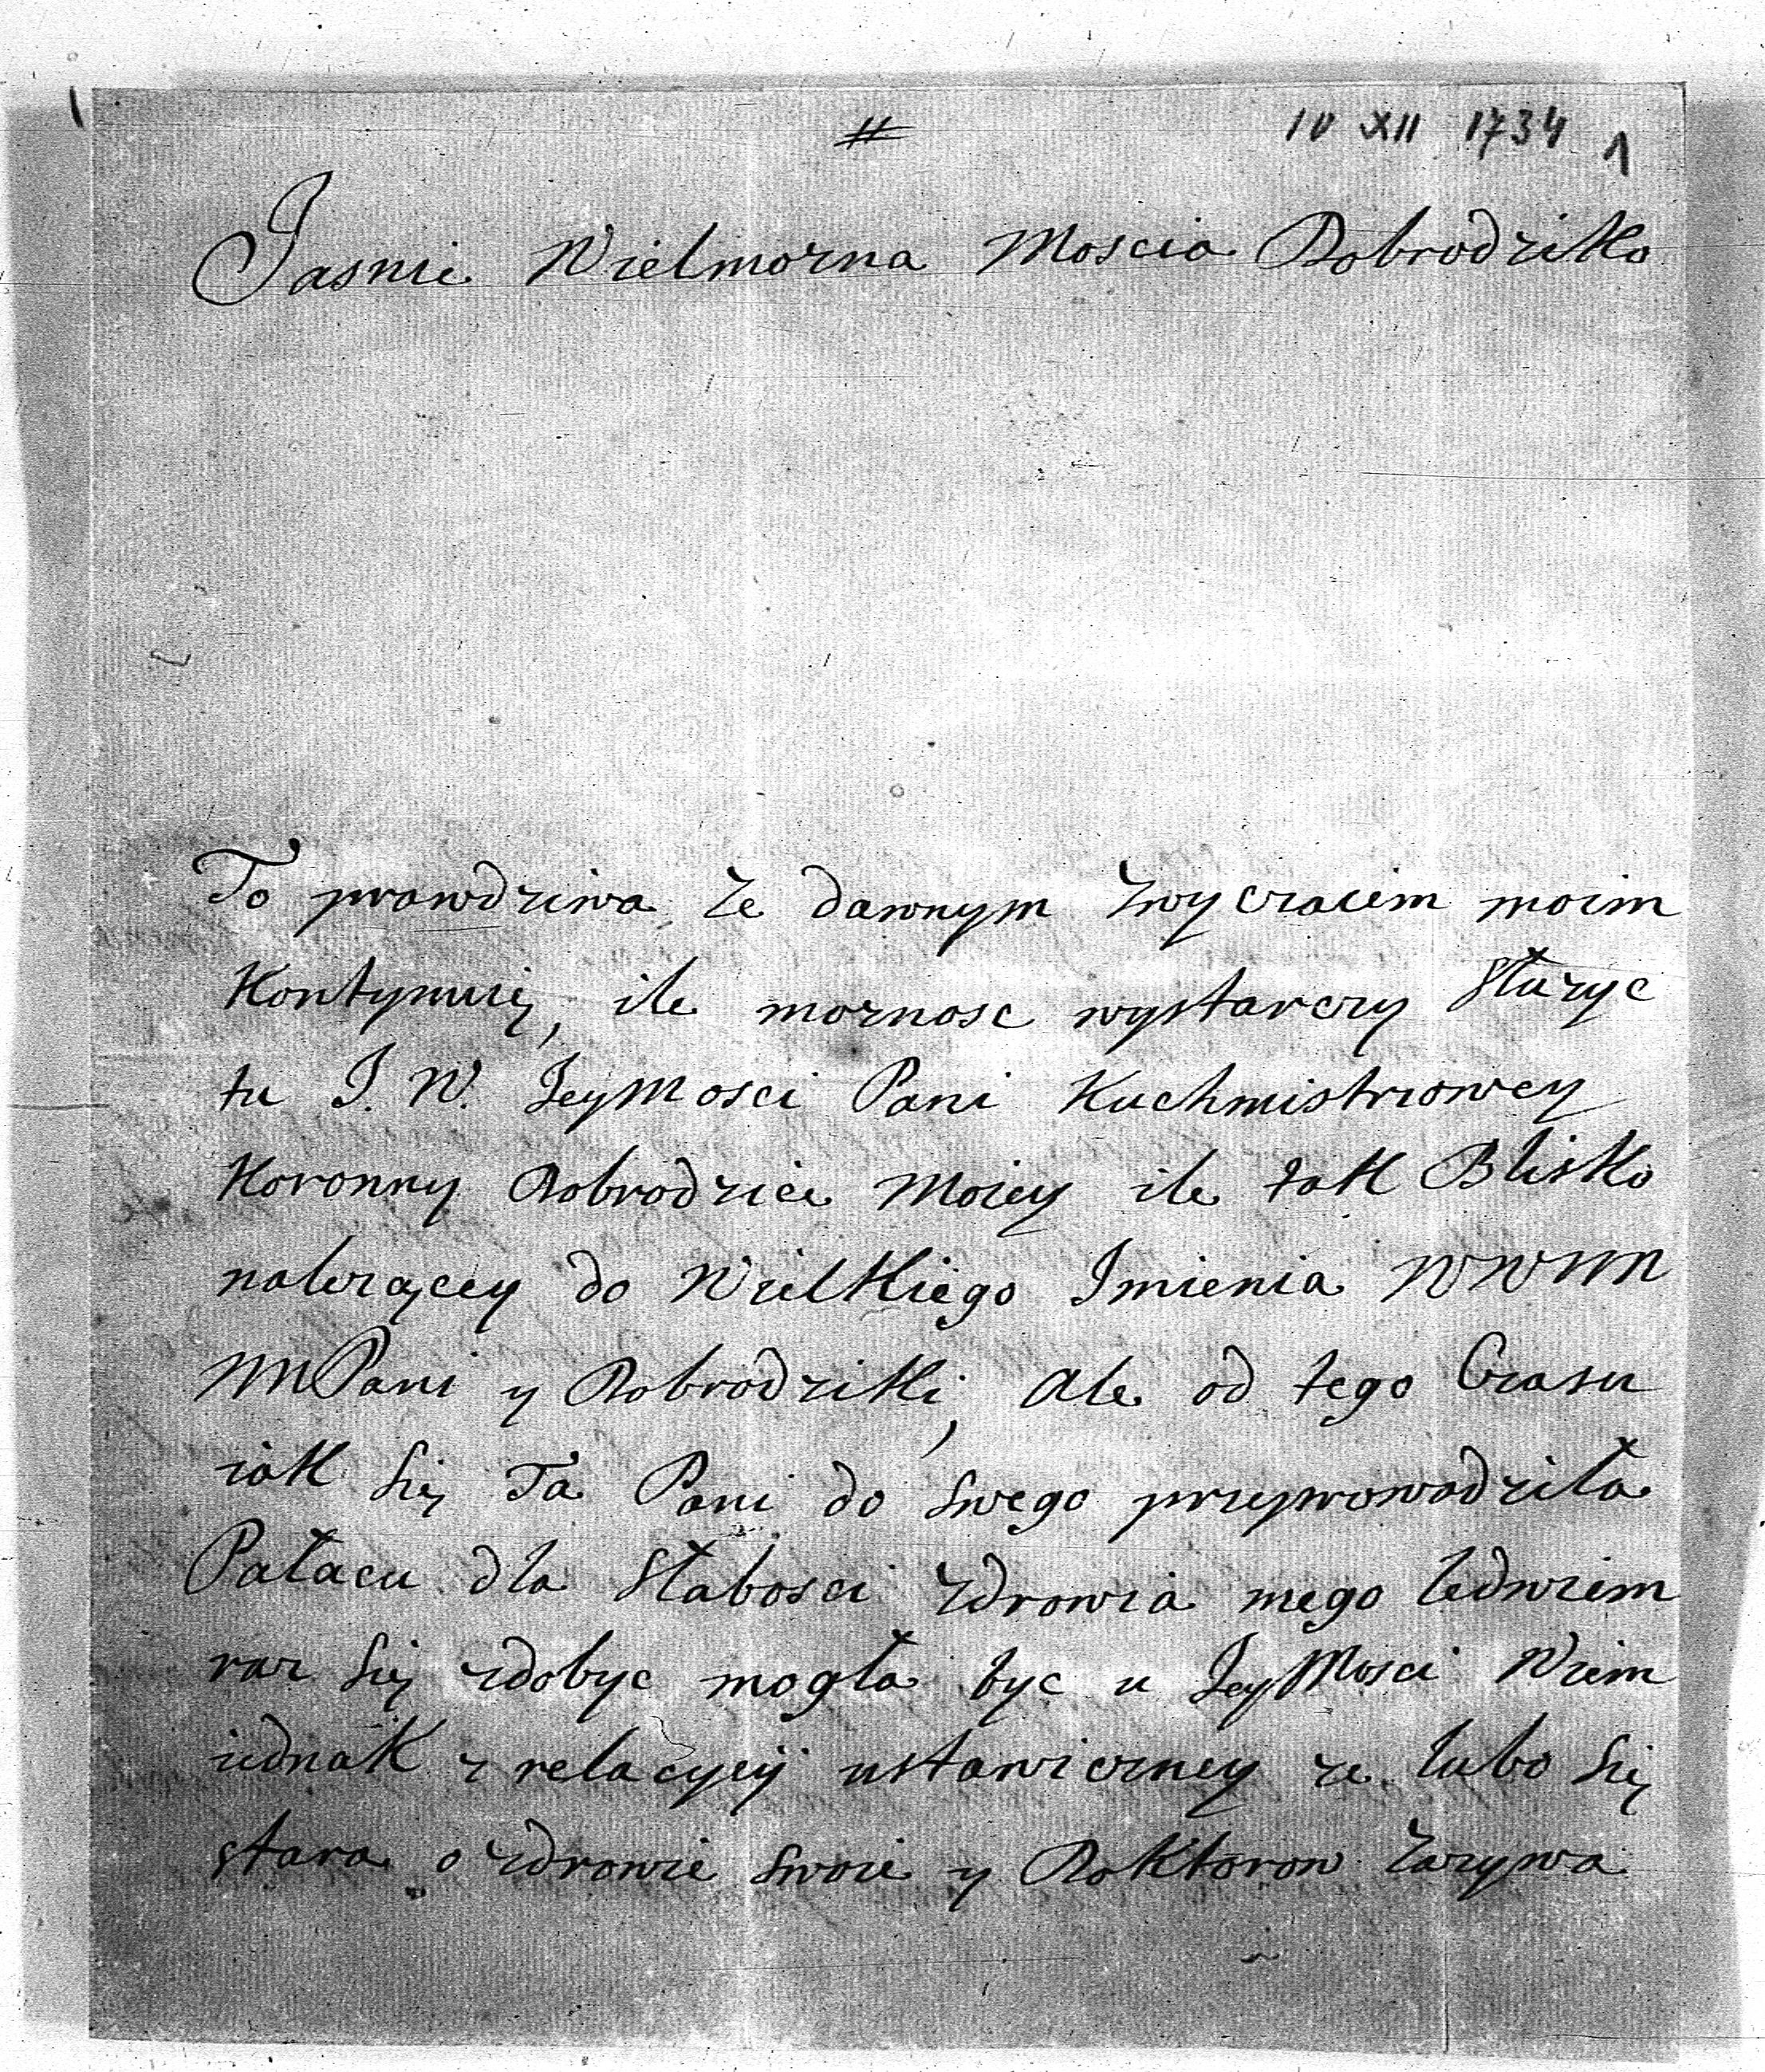 #
10 XII 1734 1
Jasnie Wielmozna Moscia Dobrodziko
To prawdziwa ze dawnym zwyczaiem moim
Kontynuię, ile moznosc wystarczy Słuzyc
tu J. W. JeyMosci Pani Kuchmistrzowey
Koronny Dobrodzice Moiey ile tak Blisko
nalezącey do Wielkiego Imienia WWM
MPani y Dobrodziki, Ale od tego Czasu
iak Się Ta Pani do Swego przyprowadziła
Pałacu dla Słabosci zdrowia mego ledwiem
raz Się zdobyc mogła byc u JeyMosci Wiem
iednak z relacyey ustawiczney ze lubo Się
stara o zdrowie Swoie y Doktorow Zazywa